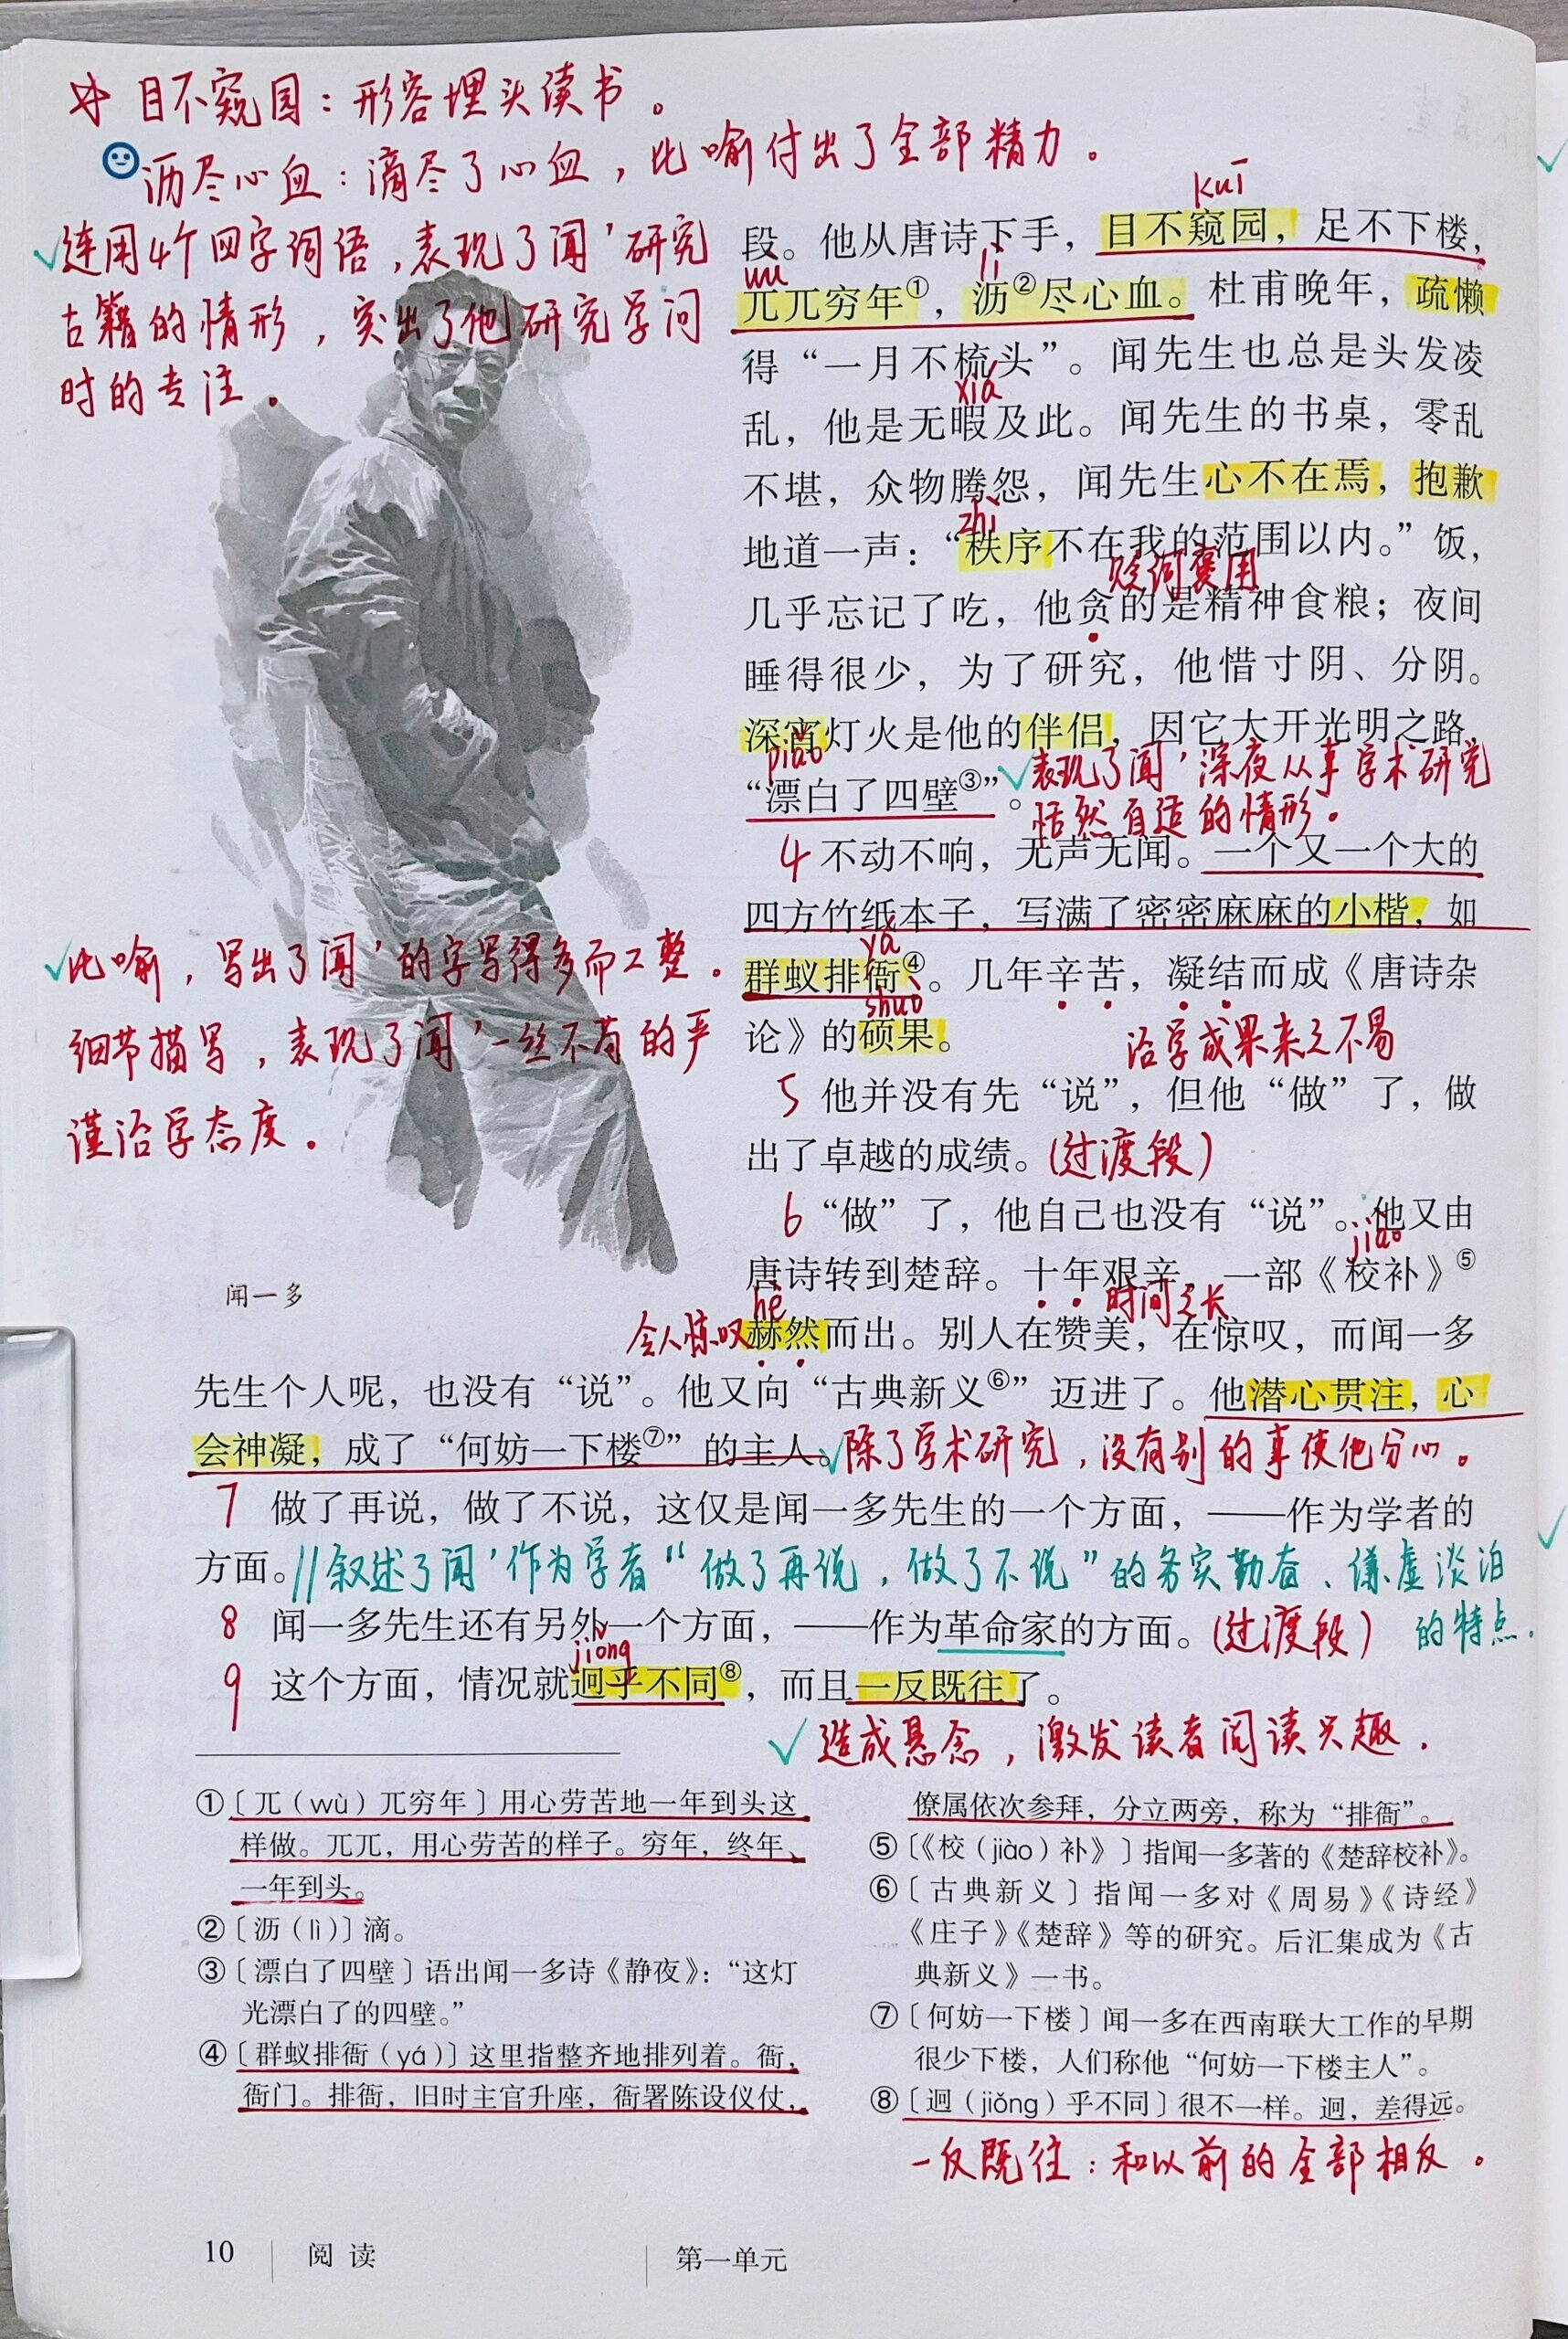 目不窥园：形容埋头读书。
沥尽心血：滴尽了心血，比喻付出了全部精力。
连用4个四字词语，表现了闻'研究
古籍的情形，突出了他研究学问
时的专注。
kuī
段。他从唐诗下手，目不窥园，足不下楼，
wù lì
兀兀穷年①，沥②尽心血。杜甫晚年，疏懒
得“一月不梳头”。闻先生也总是头发凌
xiá
乱，他是无暇及此。闻先生的书桌，零乱
不堪，众物腾怨，闻先生心不在焉，抱歉
zhì
地道一声：“秩序不在我的范围以内。”饭，
贬词褒用
几乎忘记了吃，他贪的是精神食粮；夜间
睡得很少，为了研究，他惜寸阴、分阴。
深宵灯火是他的伴侣，因它大开光明之路，
piǎo
“漂白了四壁③”。
表现了闻'深夜从事学术研究
恬然自适的情形。
4 不动不响，无声无闻。一个又一个大的
四方竹纸本子，写满了密密麻麻的小楷，如
yá
群蚁排衙④。几年辛苦，凝结而成《唐诗杂
shuò
论》的硕果。
治学成果来之不易
比喻，写出了闻'的字写得多而工整。
细节描写，表现了闻'一丝不苟的严
谨治学态度。
5 他并没有先“说”，但他“做”了，做
出了卓越的成绩。(过渡段)
6 “做”了，他自己也没有“说”。他又由
jiào
唐诗转到楚辞。十年艰辛，一部《校补》⑤
hè 时间之长
令人惊叹
赫然而出。别人在赞美，在惊叹，而闻一多
闻一多
先生个人呢，也没有“说”。他又向“古典新义⑥”迈进了。他潜心贯注，心
会神凝，成了“何妨一下楼⑦”的主人。
除了学术研究，没有别的事使他分心。
7 做了再说，做了不说，这仅是闻一多先生的一个方面，——作为学者的
方面。//叙述了闻'作为学者“做了再说，做了不说”的务实勤奋、谦虚淡泊
的特点.
8 闻一多先生还有另外一个方面，——作为革命家的方面。(过渡段)
jiǒng
9 这个方面，情况就迥乎不同⑧，而且一反既往了。
造成悬念，激发读者阅读兴趣.
①〔兀（wù）兀穷年〕用心劳苦地一年到头这
样做。兀兀，用心劳苦的样子。穷年，终年、
一年到头。
②〔沥（lì）〕滴。
③〔漂白了四壁〕语出闻一多诗《静夜》：“这灯
光漂白了的四壁。”
④〔群蚁排衙（yá）〕这里指整齐地排列着。衙，
衙门。排衙，旧时主官升座，衙署陈设仪仗，
僚属依次参拜，分立两旁，称为“排衙”。
⑤〔《校（jiào）补》〕指闻一多著的《楚辞校补》。
⑥〔古典新义〕指闻一多对《周易》《诗经》
《庄子》《楚辞》等的研究。后汇集成为《古
典新义》一书。
⑦〔何妨一下楼〕闻一多在西南联大工作的早期
很少下楼，人们称他“何妨一下楼主人”。
⑧〔迥（jiǒng）乎不同〕很不一样。迥，差得远。
一反既往：和以前的全部相反。
10 阅读 第一单元